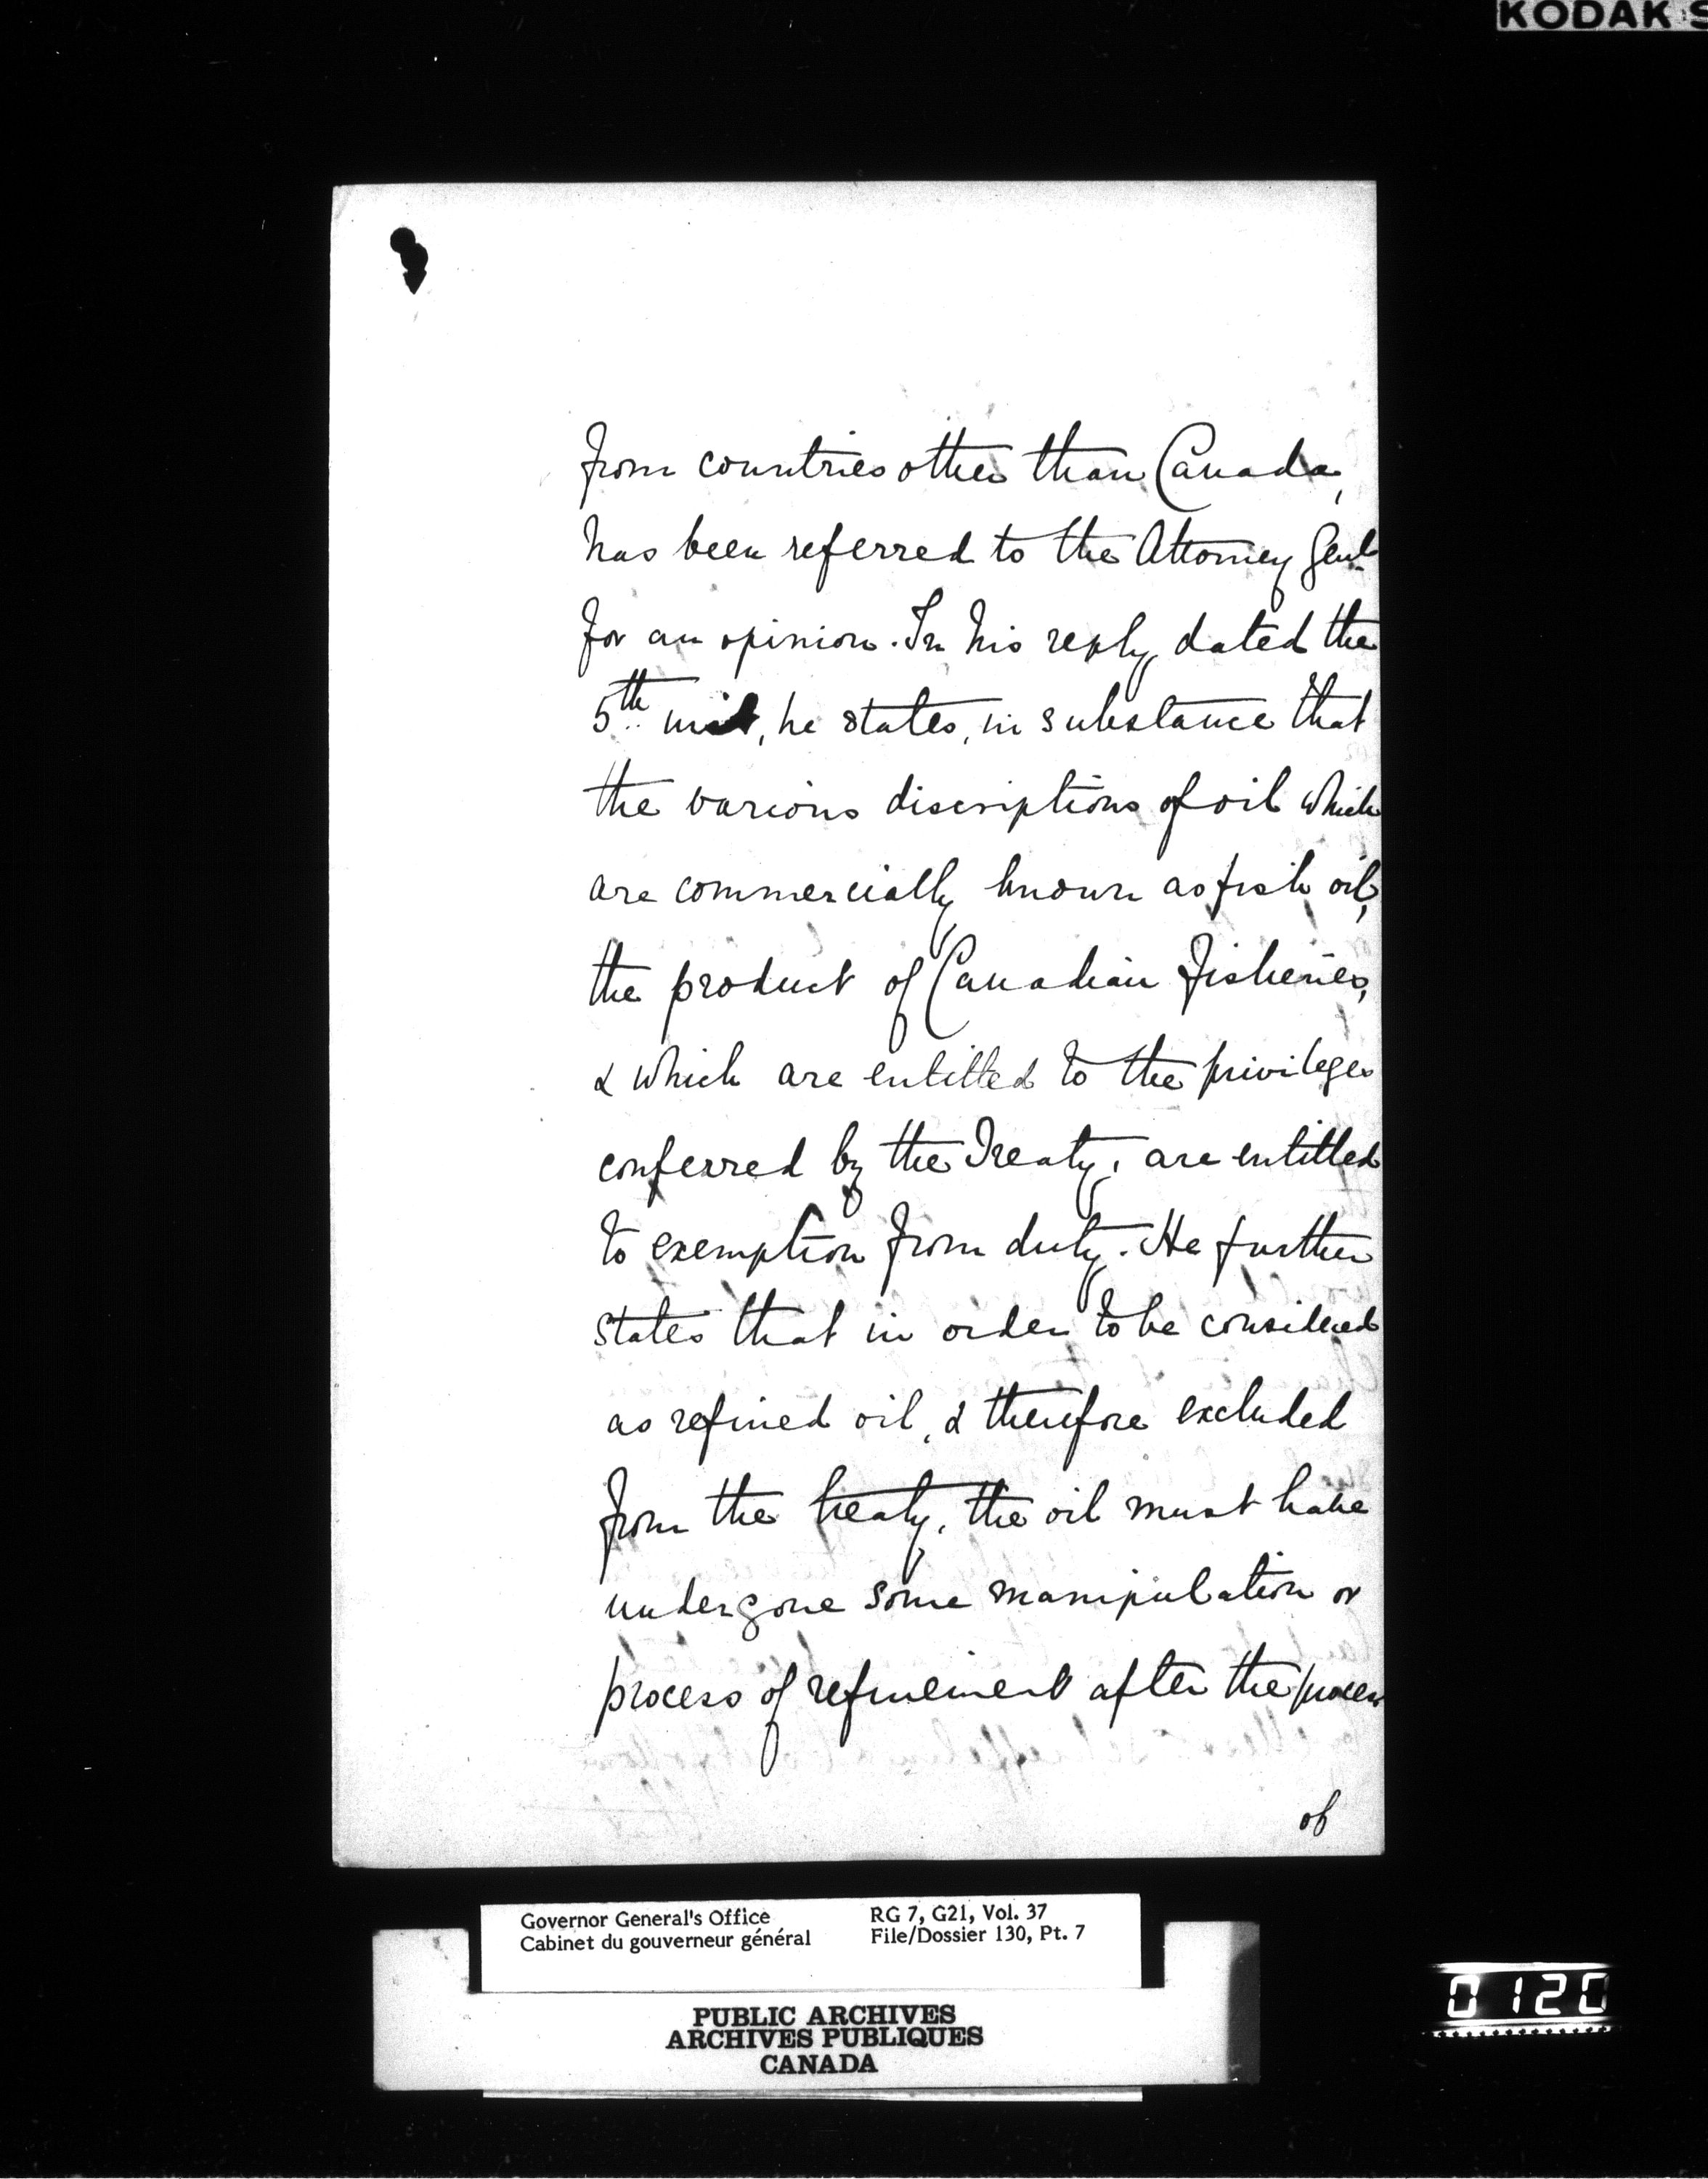 KODAK S
from countries other than Canada,
has been referred to the Attorney Genl
for an opinion. In his reply dated the
5th inst, he states, in substance that
the various discriptions of oil which
are commercially known as fish oil,
the product of Canadian Fisheries,
& which are entitled to the privileges
conferred by the Treaty, are entitled
to exemption from duty. He further
states that in order to be considered
as refined oil, & therefore excluded
from the treaty, the oil must have
undergone some manipulation or
process of refinement after the process
of
Governor General's Office RG 7, G21, Vol. 37
Cabinet du gouverneur général File/Dossier 130, Pt. 7
PUBLIC ARCHIVES
ARCHIVES PUBLIQUES
CANADA
0120